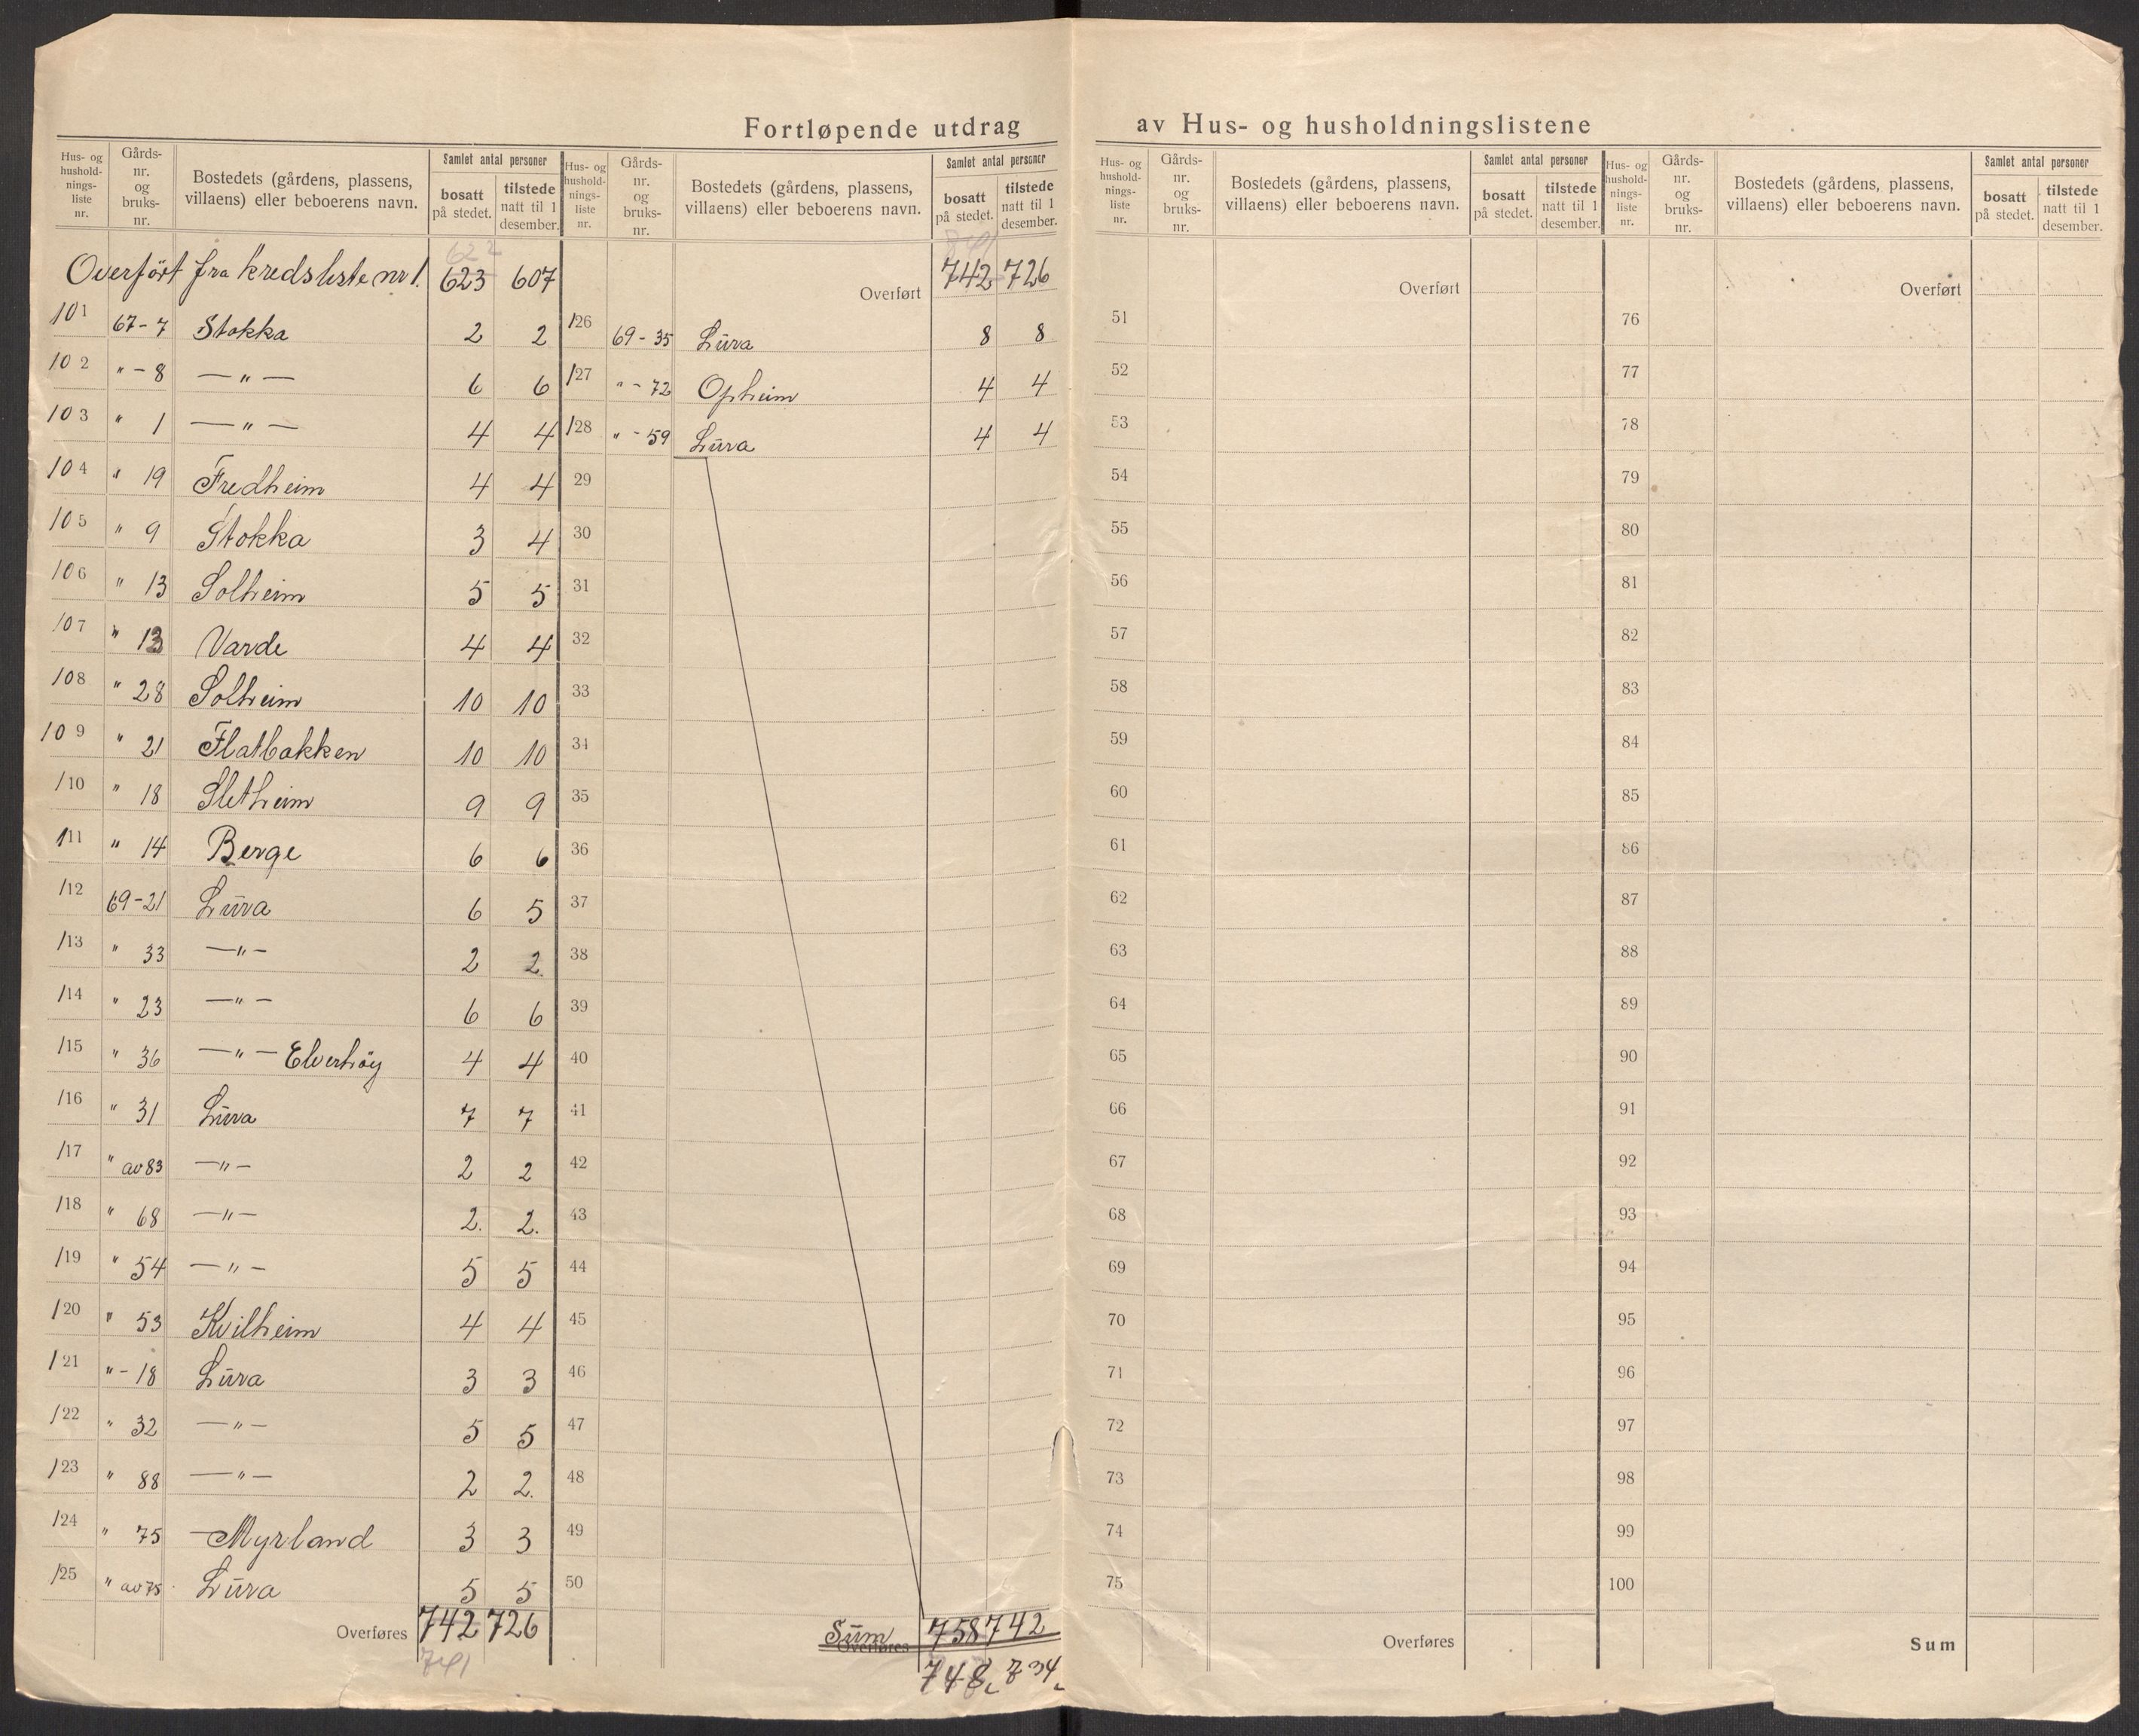 Fortløpende utdrag av Hus- og husholdningslistene
Hus- og husholdnings-liste nr. | Gårds-nr. og bruks-nr. | Bostedets (gårdens, plassens, villaens) eller beboerens navn. | Samlet antal personer | bosatt på stedet. | tilstede natt til 1 desember.
Overført fra kredsliste nr 1. 622 623 607
101 67-7 Stokka 2 2
102 " - 8 — " — 6 6
103 " 1 — " — 4 4
104 " 19 Fredheim 4 4
105 " 9 Stokka 3 4
106 " 13 Solheim 5 5
107 " 13 Varde 4 4
108 " 28 Solheim 10 10
109 " 21 Flatbakken 10 10
110 " 18 Sletheim 9 9
111 " 14 Berge 6 6
112 69-21 Lura 6 5
113 " 33 — " — 2 2.
114 " 23 — " — 6 6
115 " 36 — " — Elverhöy 4 4
116 " 31 Lura 7 7
117 " av 83 — " — 2 2
118 " 68 — " — 2. 2.
119 " 54 — " — 5 5
120 " 53 Kvilheim 4 4
121 " - 18 Lura 3 3
122 " 32 — " — 5 5
123 " 88 — " — 2 2.
124 " 75 Myrland 3 3
125 " av 75 Lura 5 5
Overføres 742 726
741
Hus- og husholdnings-liste nr. | Gårds-nr. og bruks-nr. | Bostedets (gårdens, plassens, villaens) eller beboerens navn. | Samlet antal personer | bosatt på stedet. | tilstede natt til 1 desember.
741
Overført 742 726
126 69-35 Lura 8 8
127 " - 72 Opheim 4 4
128 " - 59 Lura 4 4
29
30
31
32
33
34
35
36
37
38
39
40
41
42
43
44
45
46
47
48
49
50
Sum Overføres 758 742
748 734
Hus- og husholdnings-liste nr. | Gårds-nr. og bruks-nr. | Bostedets (gårdens, plassens, villaens) eller beboerens navn. | Samlet antal personer | bosatt på stedet. | tilstede natt til 1 desember.
Overført
51
52
53
54
55
56
57
58
59
60
61
62
63
64
65
66
67
68
69
70
71
72
73
74
75
Overføres
Hus- og husholdnings-liste nr. | Gårds-nr. og bruks-nr. | Bostedets (gårdens, plassens, villaens) eller beboerens navn. | Samlet antal personer | bosatt på stedet. | tilstede natt til 1 desember.
Overført
76
77
78
79
80
81
82
83
84
85
86
87
88
89
90
91
92
93
94
95
96
97
98
99
100
Sum